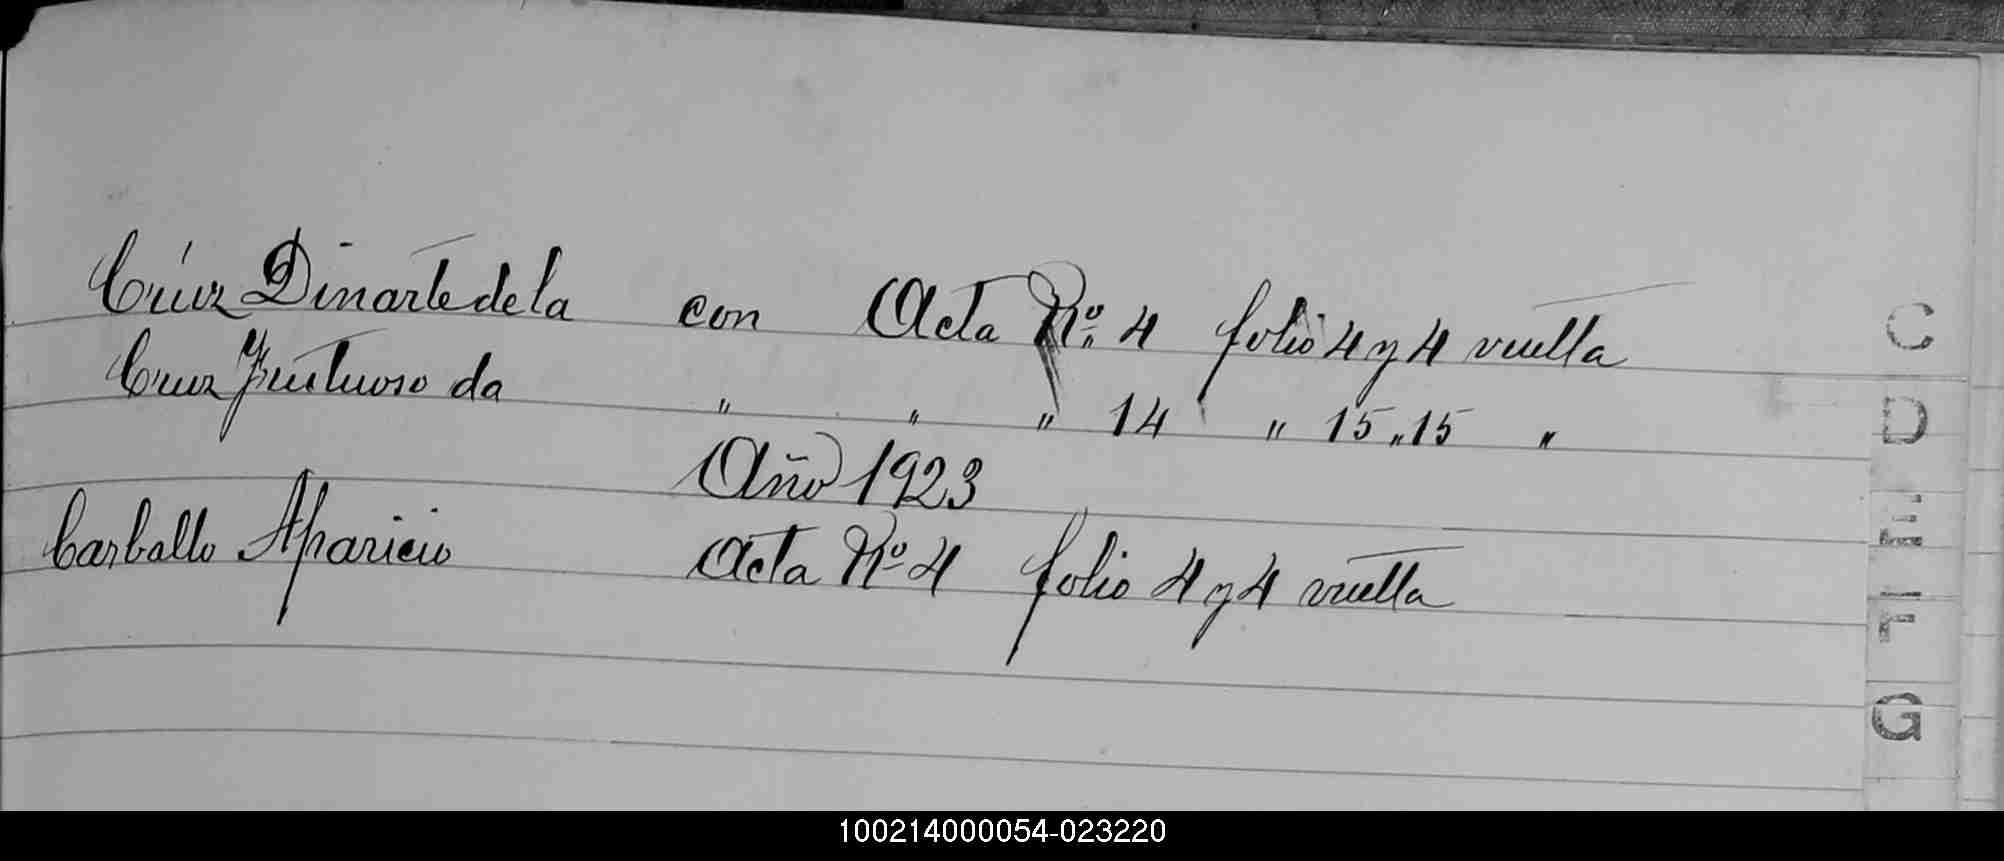 Cruz Dinarte de la con Acta No. 4 folio 4 y 4 vuelta
Cruz Frutuoso da " " " 14 " 15 " 15 "
Año 1923
Carballo Aparicio Acta No 4 folio 4 y 4 vuelta
C
D
E
F
G
100214000054-023220